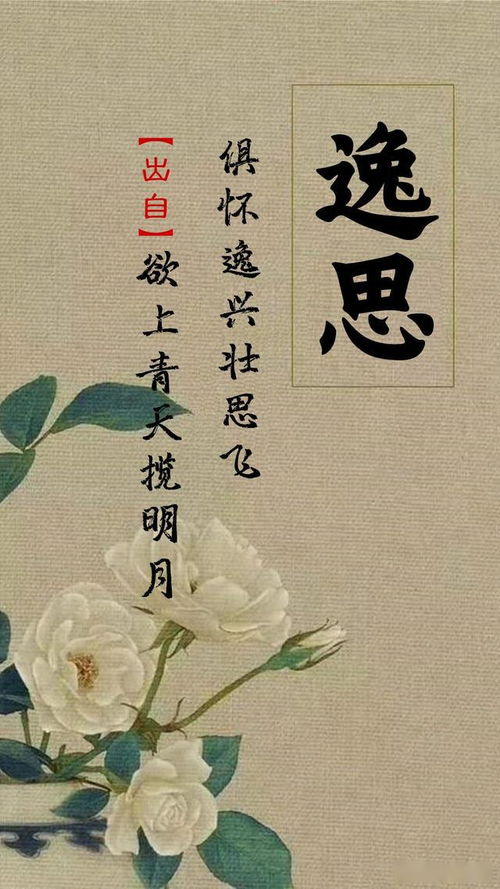 逸思
俱怀逸兴壮思飞
【出自】欲上青天揽明月